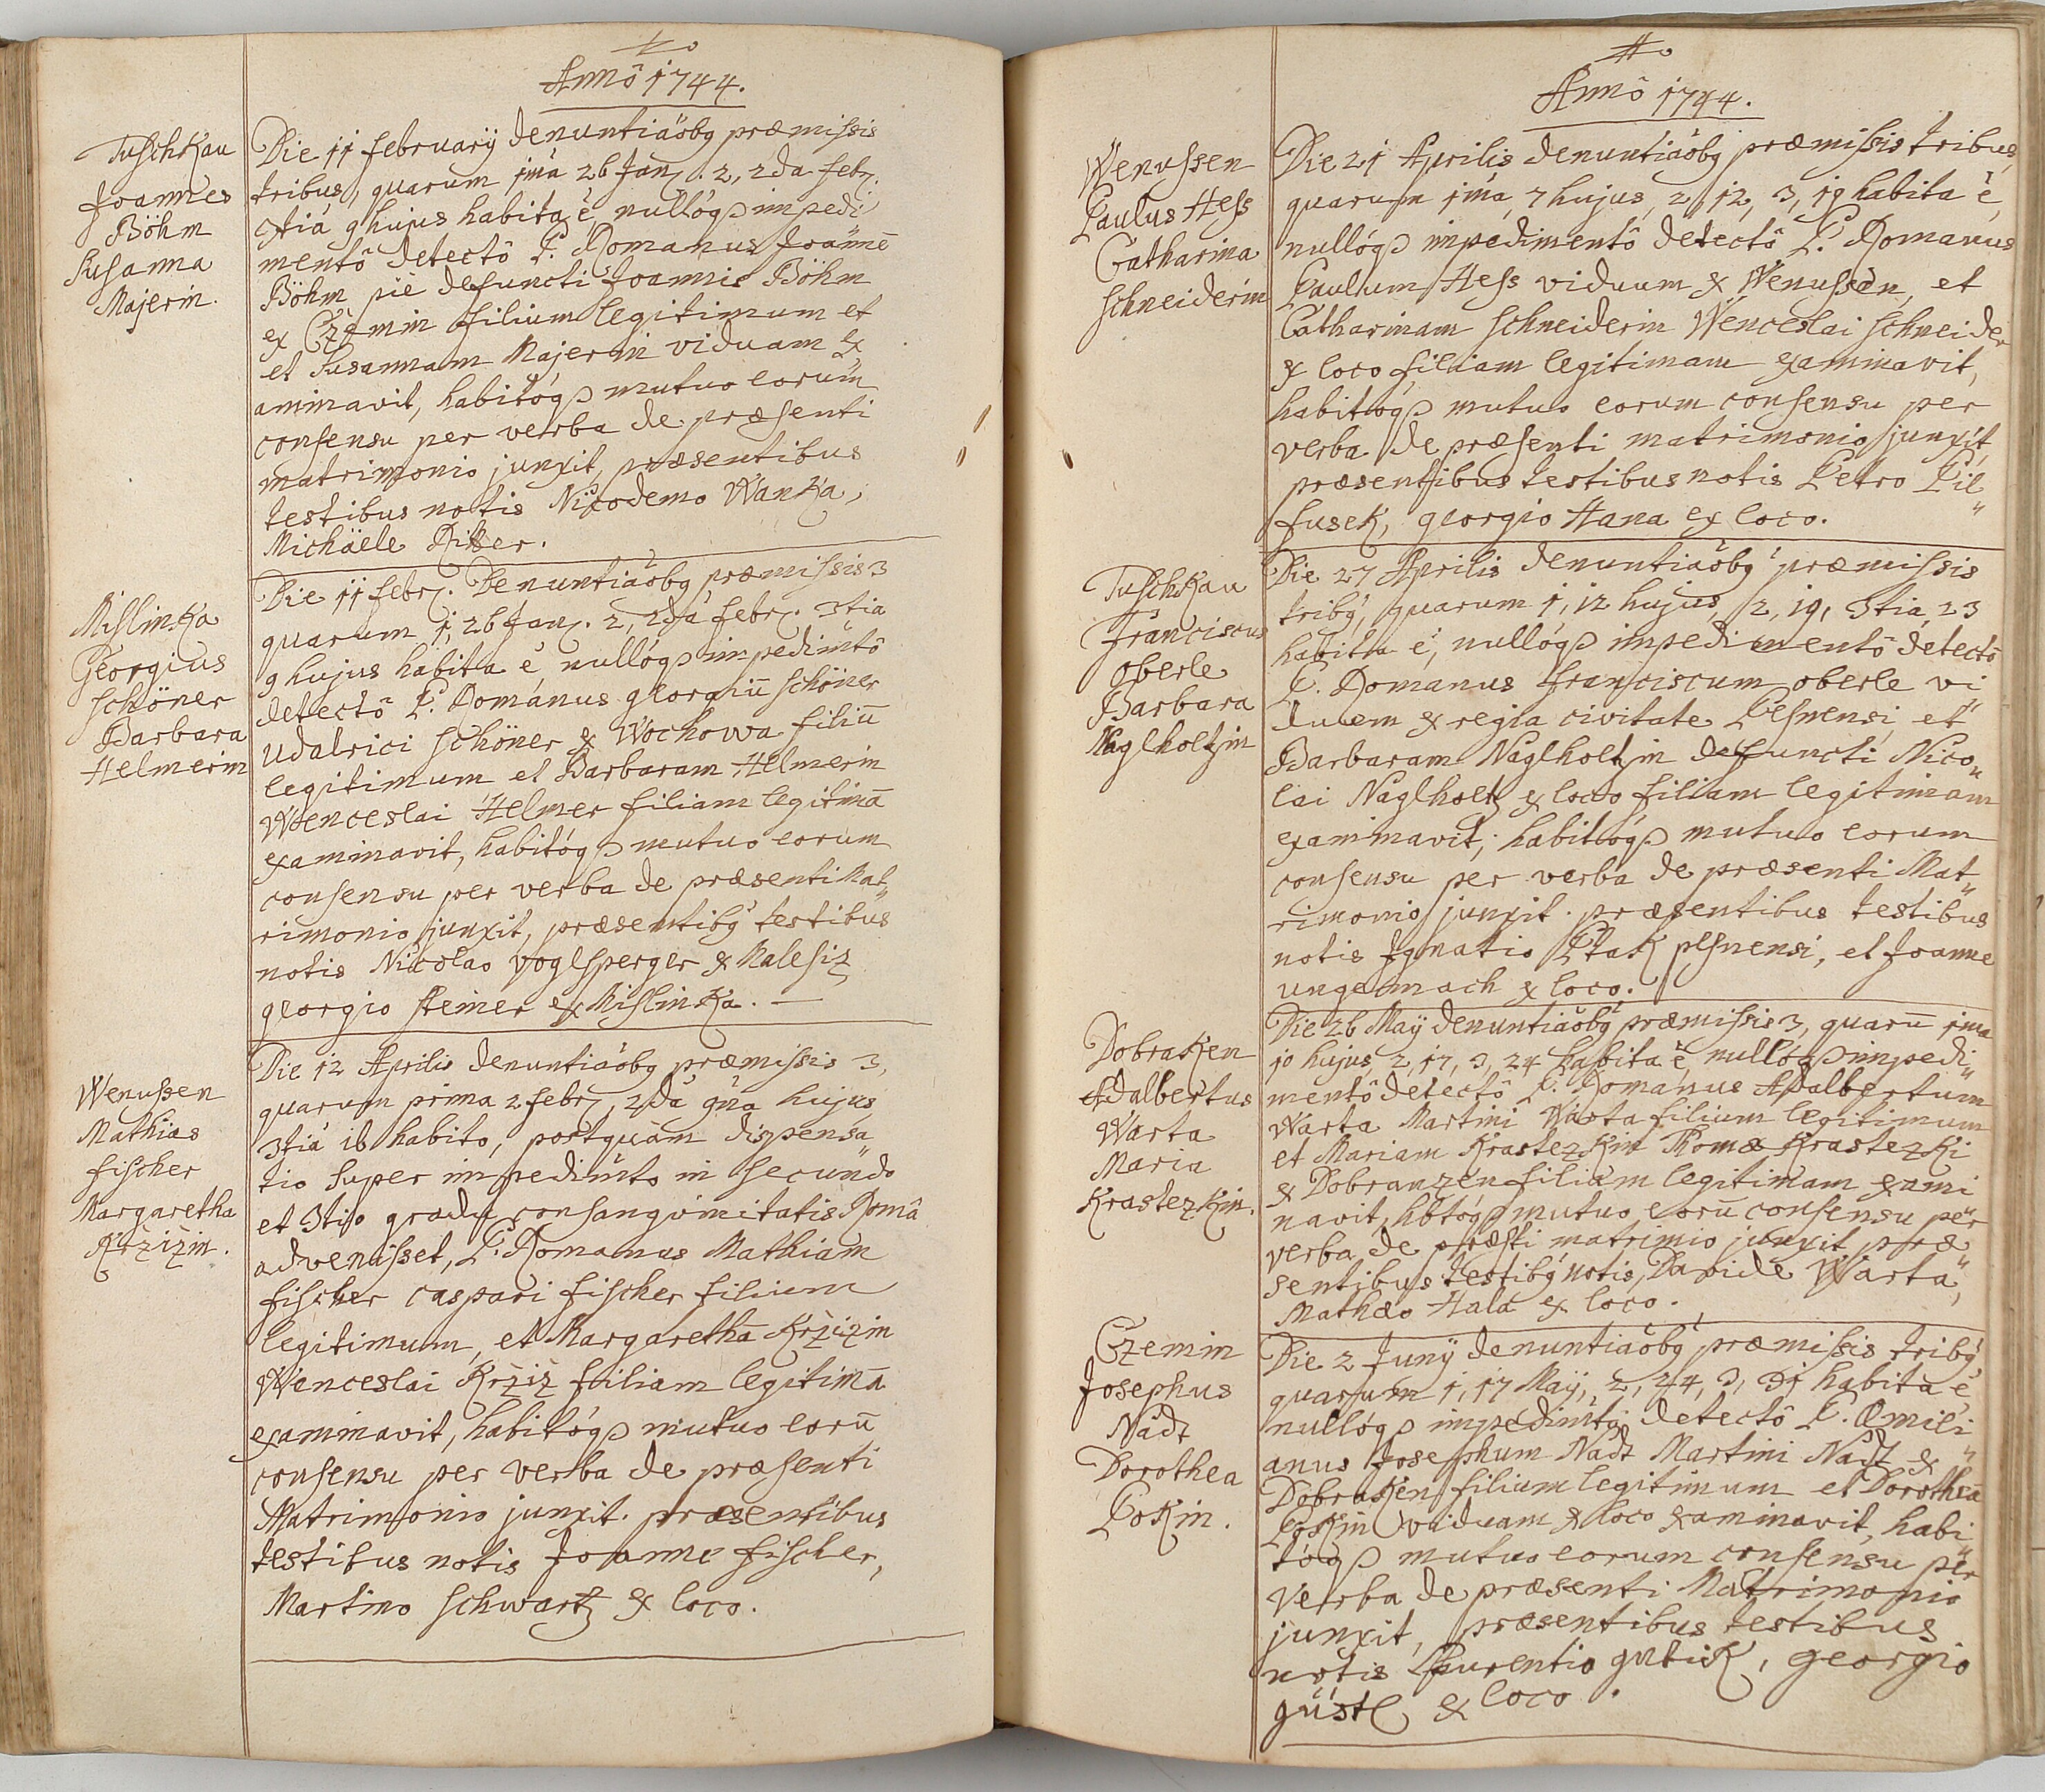 Annô 1744.
Tuschkau
Joannes
Böhm
Susanna
Majerin.
Die 11 february denuntiaöbg præmissis
tribus, quarum jma 26 Janr. 2, 2da febr.
3tia 9 hujus habita e, nullóqз impedi
mentô detectô P. Romanus Joannē
Böhm piè defuncti Joannis Böhm
ex Czemin filium legitimum et
et Susannam Majerin viduam ex
aminavit, habitóqз mutuo eorum
consensu per verba de præsenti
matrimonio junxit, præsentibus
testibus notis Nicodemo Wanka,
Michäele Ritter.
Mislinka
Georgius
Schöner
Barbara
Helmerin
Die 11 febr. Denuntiaöbg præmissis 3
quarum 1, 26 Jan. 2, 2da febr. 3tia
9 hujus habita é, nullóqз impedimtô
detectô P. Romanus georgiū Schöner
Udalrici Schöner ex Wochowa filiū
legitimum et Barbaram Helmerin
Wenceslai Helmer filiam legitimā
examinavit, habitóqз mutuo eorum
consensu per verba de præsenti Mat„
rimonio junxit, præsentibg testibus
notis Nicolao Voglsperger ex Malesiz
georgio Steiner ex Mislinka. —
Wenussen
Mathias
fischer
Margaretha
Krzizin.
Die 12 Aprilis denuntiaöbg præmissis 3,
quarum prima 2 febr, 2da 9na hujus
3tia 16 habito, postquam dispensa„
tio super impedimto in secundo
et 3tio gradu consangvinitatis Româ
advenisset, P. Romanus Mathiam
fischer caspari fischer filium
legitimum, et Margarethā Krzizin
Wenceslai Krziz filiam legitimā
examinavit, habitóqз mutuo eorū
consensu per verba de præsenti
Matrimonio junxit. præsentibus
testibus notis Joanne fischer,
Martino Schwartz ex loco.
Annô 1744.
Wenussen
Paulus Hess
Catharina
Schneiderin
Die 21 Aprilis denuntiaöbg præmissis tribus
quarum jma, 7 hujus, 2, 12, 3, 19 habita é,
nullóqз impedimentô detectô P. Romanus
Paulum Hess viduum ex Wenussen, et
Catharinam Schneiderin Wenceslai Schneider
ex loco filiam legitimam examinavit,
habitóqз mutuo eorum consensu per
verba de præsenti matrimonio junxit,
præsentibus testibus notis Petro Pil„
fusek, georgio Hana ex loco.
Tuschkau
Franciscus
oberle
Barbara
Naglholtzin
Die 27 Aprilis denuntiaöbg præmissis
tribg, quarum 1, 12 hujus, 2, 19, 3tia, 23
habita é, nullóqз impedimentô detectô
P. Romanus franciscum oberle vi„
duum ex regia civitate Pesnensi, et
Barbaram Naglholtzin defuncti Nico„
lai Naglholtz ex loco filiam legitimam
examinavit, habitóqз mutuo eorum
consensu per verba de præsenti Mat„
rimonio junxit. præsentibus testibus
notis Ignatio Ptak pesnensi, et Joanne
ungermach ex loco.
Dobraken
Adalbertus
Warta
Maria
Krastezkin.
Die 26 Maÿ denuntiaöbg præmissis 3, quarū jma
10 hujus, 2, 17, 3, 24 habita é, nullóqз impedi„
mentô detectô P. Romanus Adalbertum
Warta Martini Warta filium legitimum
et Mariam Krastezkin Thomæ Krastezki
ex Dobranzen filiam legitimam exami„
navit, hbtóqз mutuo eorū consensu per
verba de præsti matrimio junxit præ„
sentibus testibg notis, Davide Warta,
Mathæo Hala ex loco.
Czemin
Josephus
Nadt
Dorothea
Pokin.
Die 2 Junÿ denuntiaöbg præmissis tribg
quarum 1, 17 Maij, 2, 24, 3, 31 habita é
nullóqз impedimtô detectô P. Æmili„
anus Josephum Nadt Martini Nadt ex
Dobraken filium legitimum et Dorotheā
Pokin viduam ex loco examinavit, habi„
tóqз mutuo eorum consensu per
verba de præsenti Matrimonio
junxit, præsentibus testibus
notis Laurentio gutik, georgio
güstl ex loco.